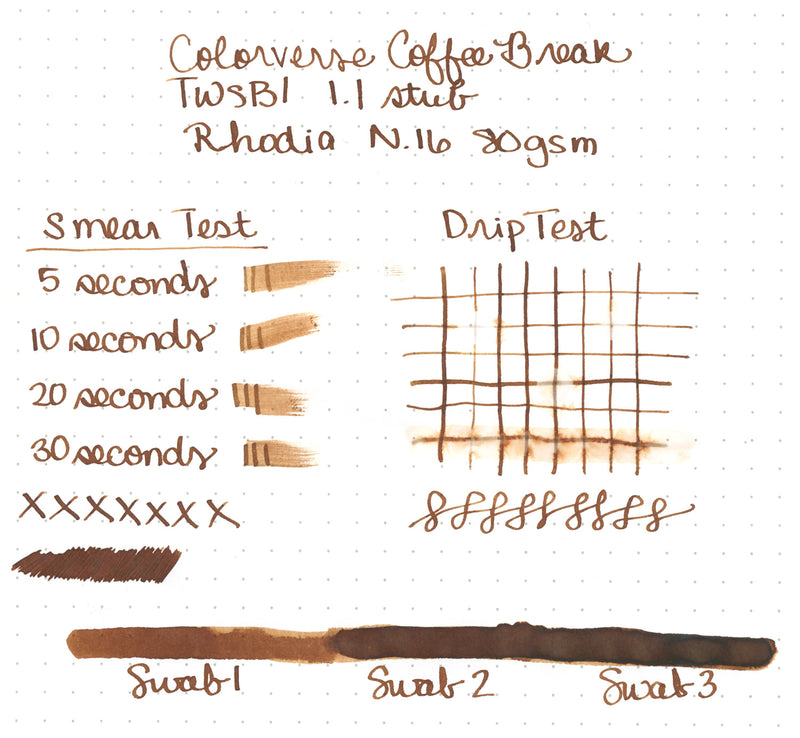 Colorverse Coffee Break
TWSBI 1.1 stub
Rhodia N.16 80gsm
Smear Test
5 seconds
10 seconds
20 seconds
30 seconds
XXXXXXX
Drip Test
Swab 1
Swab 2
Swab 3